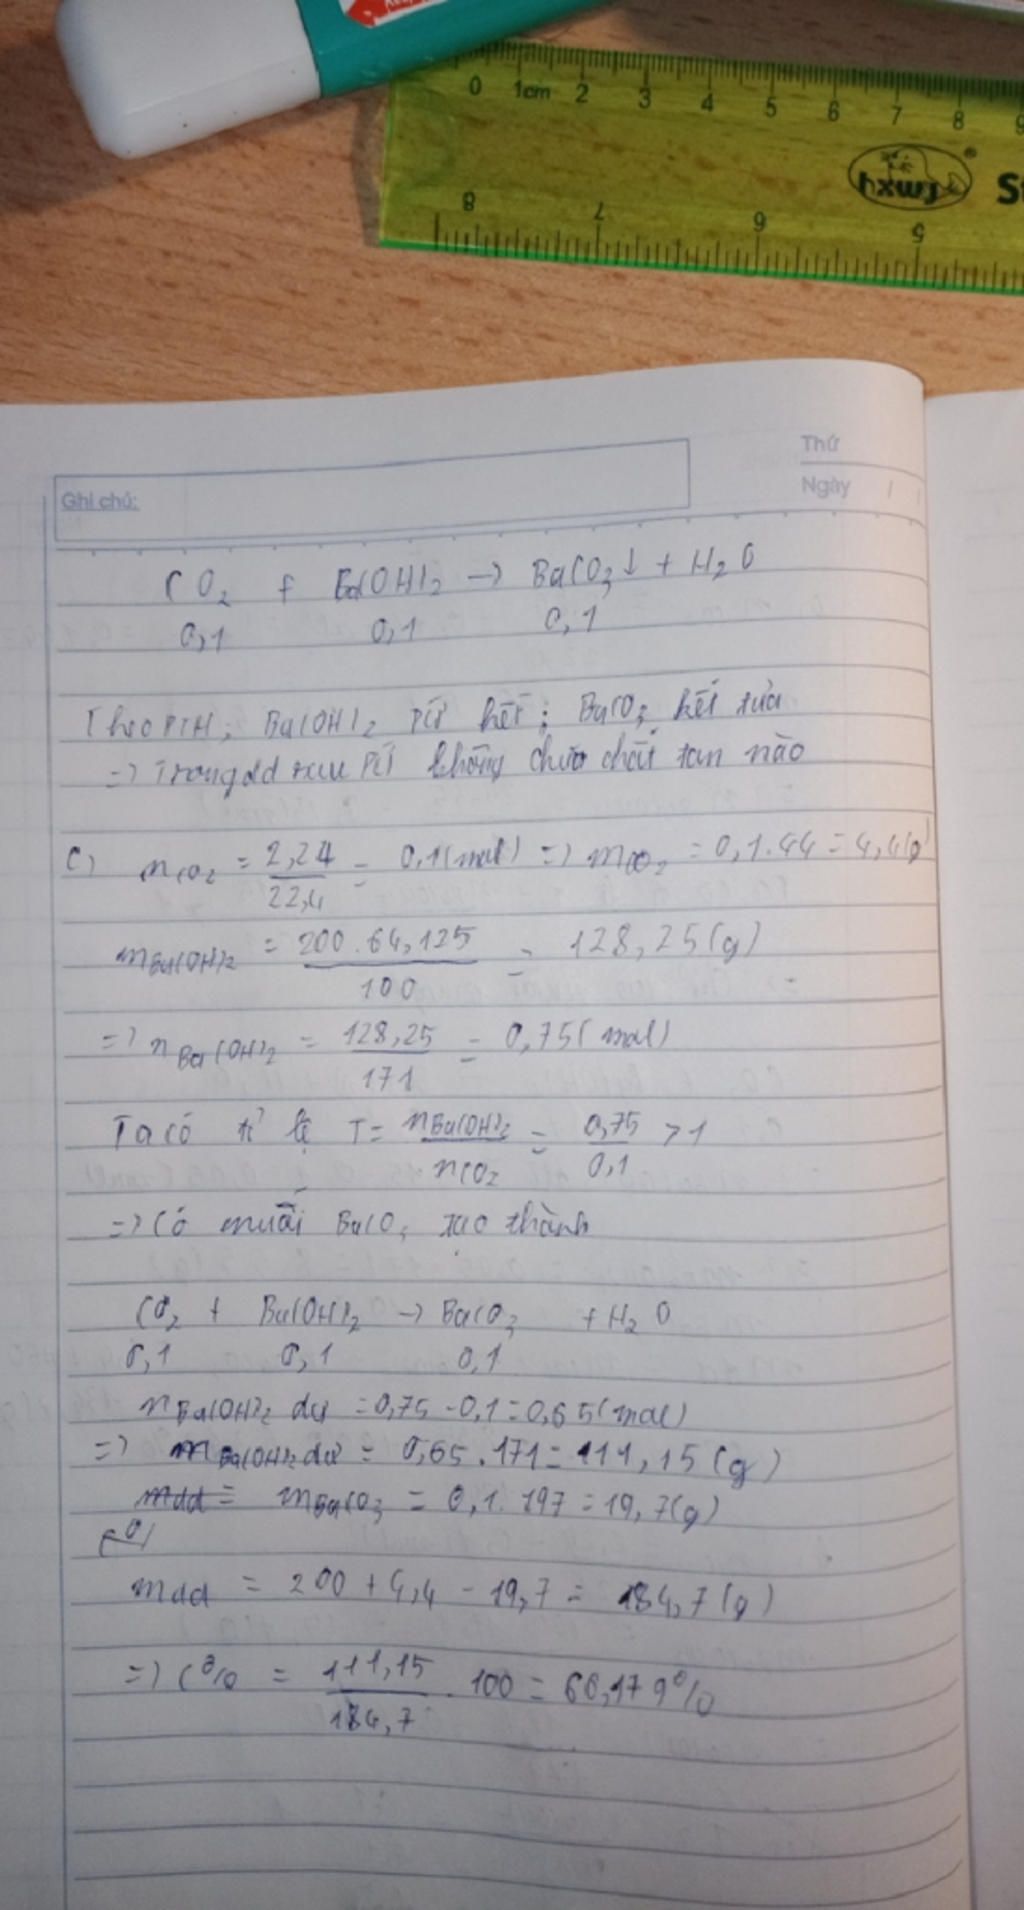 0 1cm 2 3 4 5 6 7 8 9
hxwj ® St
8 7 6 5
Thứ
Ghi chú:
Ngày / /
CO₂ + Ba(OH)₂ → BaCO₃↓ + H₂O
0,1 0,1 0,1
Theo PTH, Ba(OH)₂ pứ hết; BaCO₃ kết tủa
=> Trong dd sau pứ không chứa chất tan nào
c) nCO₂ = 2,24/22,4 = 0,1(mol) => mCO₂ = 0,1.44 = 4,4(g)
mBa(OH)₂ = 200.64,125/100 = 128,25(g)
=> nBa(OH)₂ = 128,25/171 = 0,75(mol)
Ta có tỉ lệ T = nBa(OH)₂/nCO₂ = 0,75/0,1 > 1
=> Có muối BaCO₃ tạo thành
CO₂ + Ba(OH)₂ → BaCO₃ + H₂O
0,1 0,1 0,1
nBa(OH)₂ dư = 0,75 - 0,1 = 0,65(mol)
=> mBa(OH)₂ dư = 0,65.171 = 111,15(g)
mdd = mBaCO₃ = 0,1.197 = 19,7(g)
mdd = 200 + 4,4 - 19,7 = 184,7(g)
=> C% = 111,15/184,7 . 100 = 60,179%